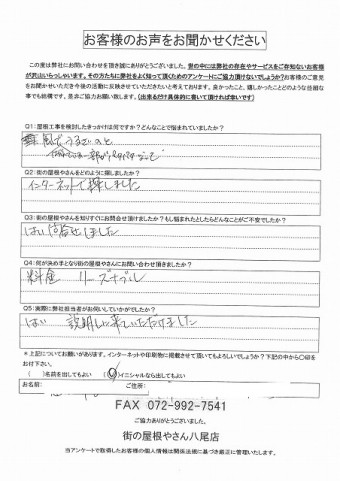 お客様のお声をお聞かせください
この度は弊社にお問い合わせを頂き誠にありがとうございました。世の中には弊社の存在やサービスをご存知ないお客様
が沢山いらっしゃいます。その方たちに弊社をよく知って頂くためのアンケートにご協力頂けないでしょうか?お客様のご意見
をお聞かせいただき今後の活動に反映させていただきたいと考えております。良かったこと、嬉しかったことどのような些細な
事でも結構です。是非ご協力お願い致します。(出来るだけ具体的に書いて頂ければ幸いです)
Q1:屋根工事を検討したきっかけは何ですか?どんなことで悩まれていましたか?
風でうるさいのと
一部がパタパタして
Q2:街の屋根やさんをどのように探しましたか?
インターネットで探しました
Q3:街の屋根やさんを知りすぐにお問合せ頂けましたか?もし悩まれたとしたらどんなことがご不安でしたか?
はい 問合せしました
Q4:何が決め手となり街の屋根やさんにお問い合わせ頂きましたか?
料金 リーズナブル
Q5:実際に弊社担当者がお伺いしていかがでしたか?
はい 説明しに来ていただけました
*上記についてお願いがあります。インターネットや印刷物に掲載させて頂いてもよろしいでしょうか?下記の中から〇印を
お付下さい。
( )名前を出してもよい (〇)イニシャルなら出してもよい
お名前: ご住所:
FAX 072-992-7541
ご協力ありがとうございました。
街の屋根やさん八尾店
当アンケートで取得したお客様の個人情報は関係法規に基づき厳正に管理いたします。